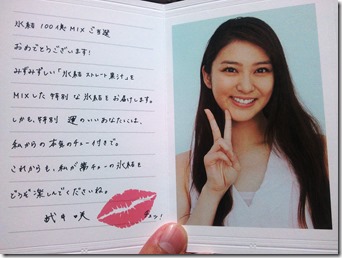 氷結100億MIXご当選
おめでとうございます!
みずみずしい「氷結ストレート果汁」を
MIXした特別な氷結をお届けします。
しかも、特別運のいいあなたには、
私からの本気のチュー付きで。
これからも、私が夢チューの氷結を
どうぞ楽しんでくださいね。
武井咲
チュッ!